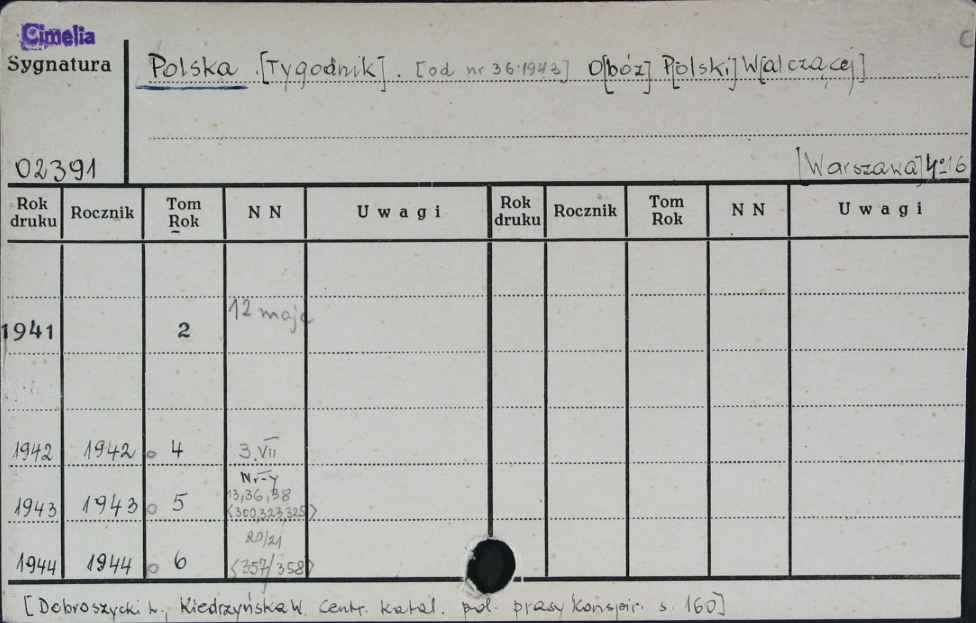 Cimelia
Sygnatura
Polska [Tygodnik]. [od nr 36:1943] O[bóz] P[olski] W[alczącej]
02391
[Warszawa] 4° 16
Rok druku Rocznik Tom Rok N N Uwagi Rok druku Rocznik Tom Rok N N Uwagi
1941 2 12 maja
1942 1942 4 3.VII
Nr-y
1943 1943 5 13,36,38
(300,323,325)
20/21
1944 1944 6 (357/358)
[Dobroszycki L., Kiedrzyńska W. Centr. katal. pol. prasy konspir. s. 160]